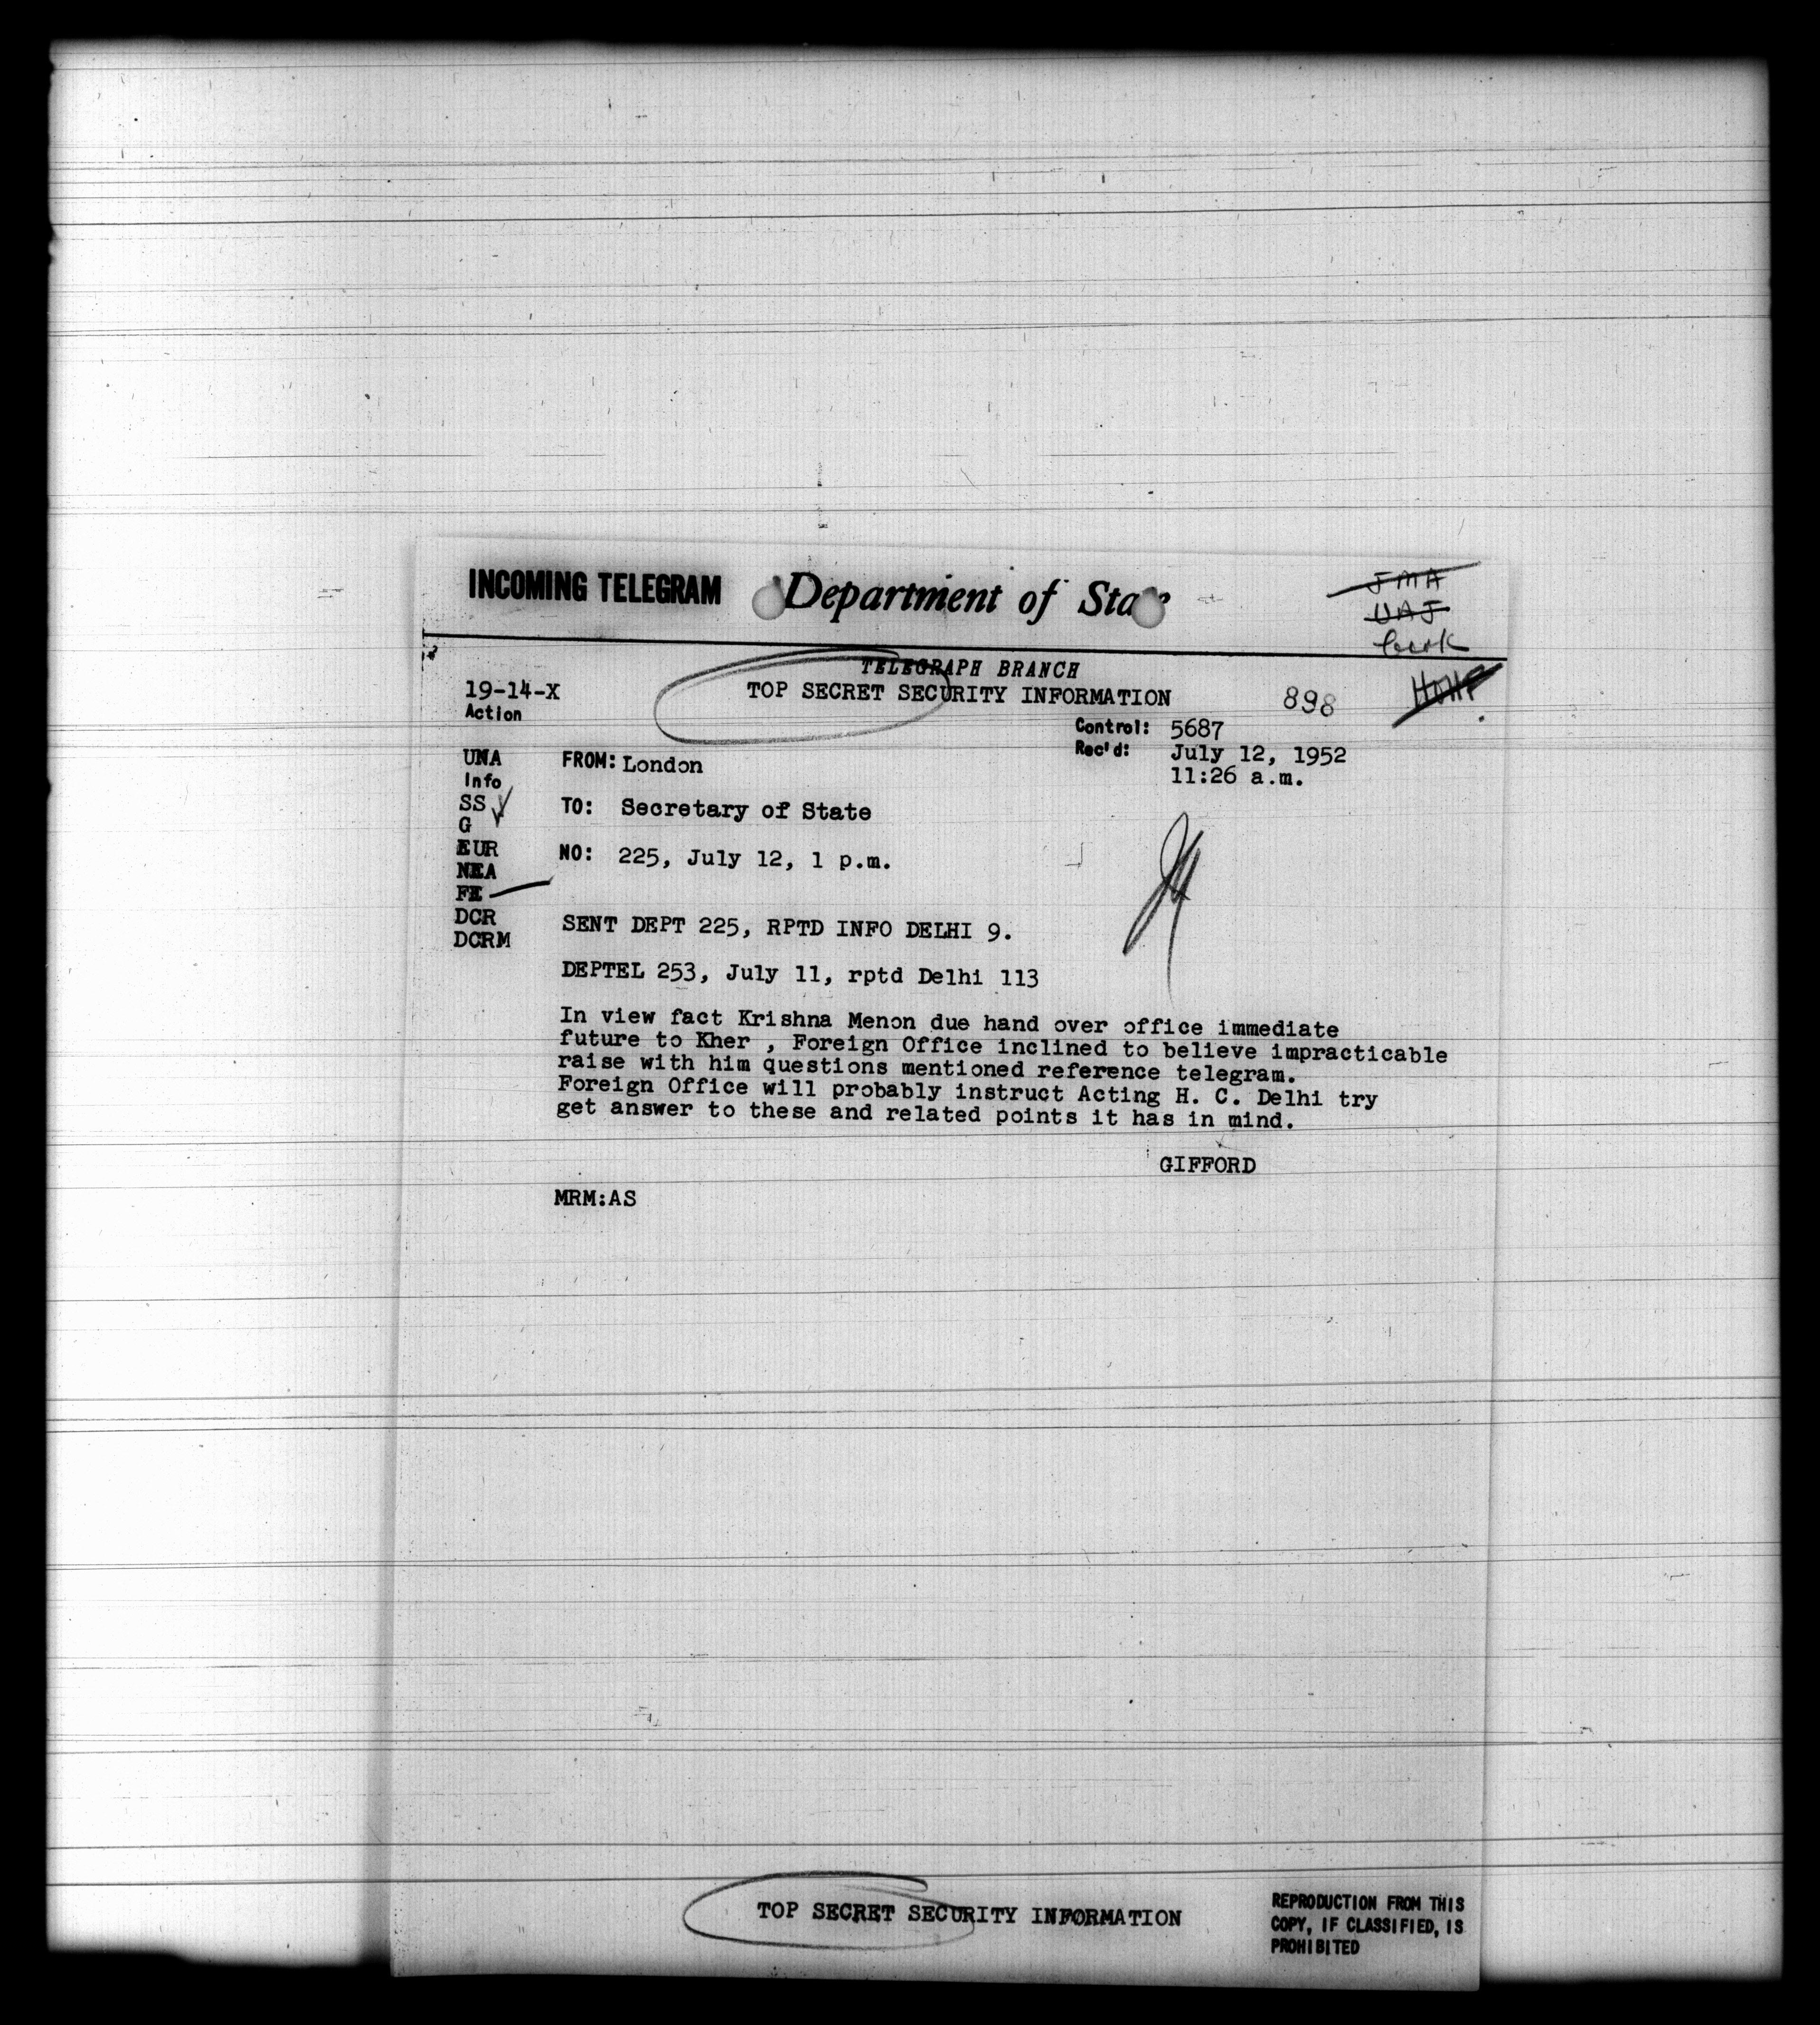 INCOMING TELEGRAM Department of State
JMA
UAJ
TELEGRAPH BRANCH
19-14-X TOP SECRET SECURITY INFORMATION 898
Action
Control: 5687
Rec'd: July 12, 1952
11:26 a.m.
UNA
FROM: London
Info
SS
TO: Secretary of State
G
EUR
NO: 225, July 12, 1 p.m.
NEA
FE
DCR
SENT DEPT 225, RPTD INFO DELHI 9.
DCRM
DEPTEL 253, July 11, rptd Delhi 113
In view fact Krishna Menon due hand over office immediate
future to Kher , Foreign Office inclined to believe impracticable
raise with him questions mentioned reference telegram.
Foreign Office will probably instruct Acting H. C. Delhi try
get answer to these and related points it has in mind.
GIFFORD
MRM:AS
TOP SECRET SECURITY INFORMATION
REPRODUCTION FROM THIS
COPY, IF CLASSIFIED, IS
PROHIBITED